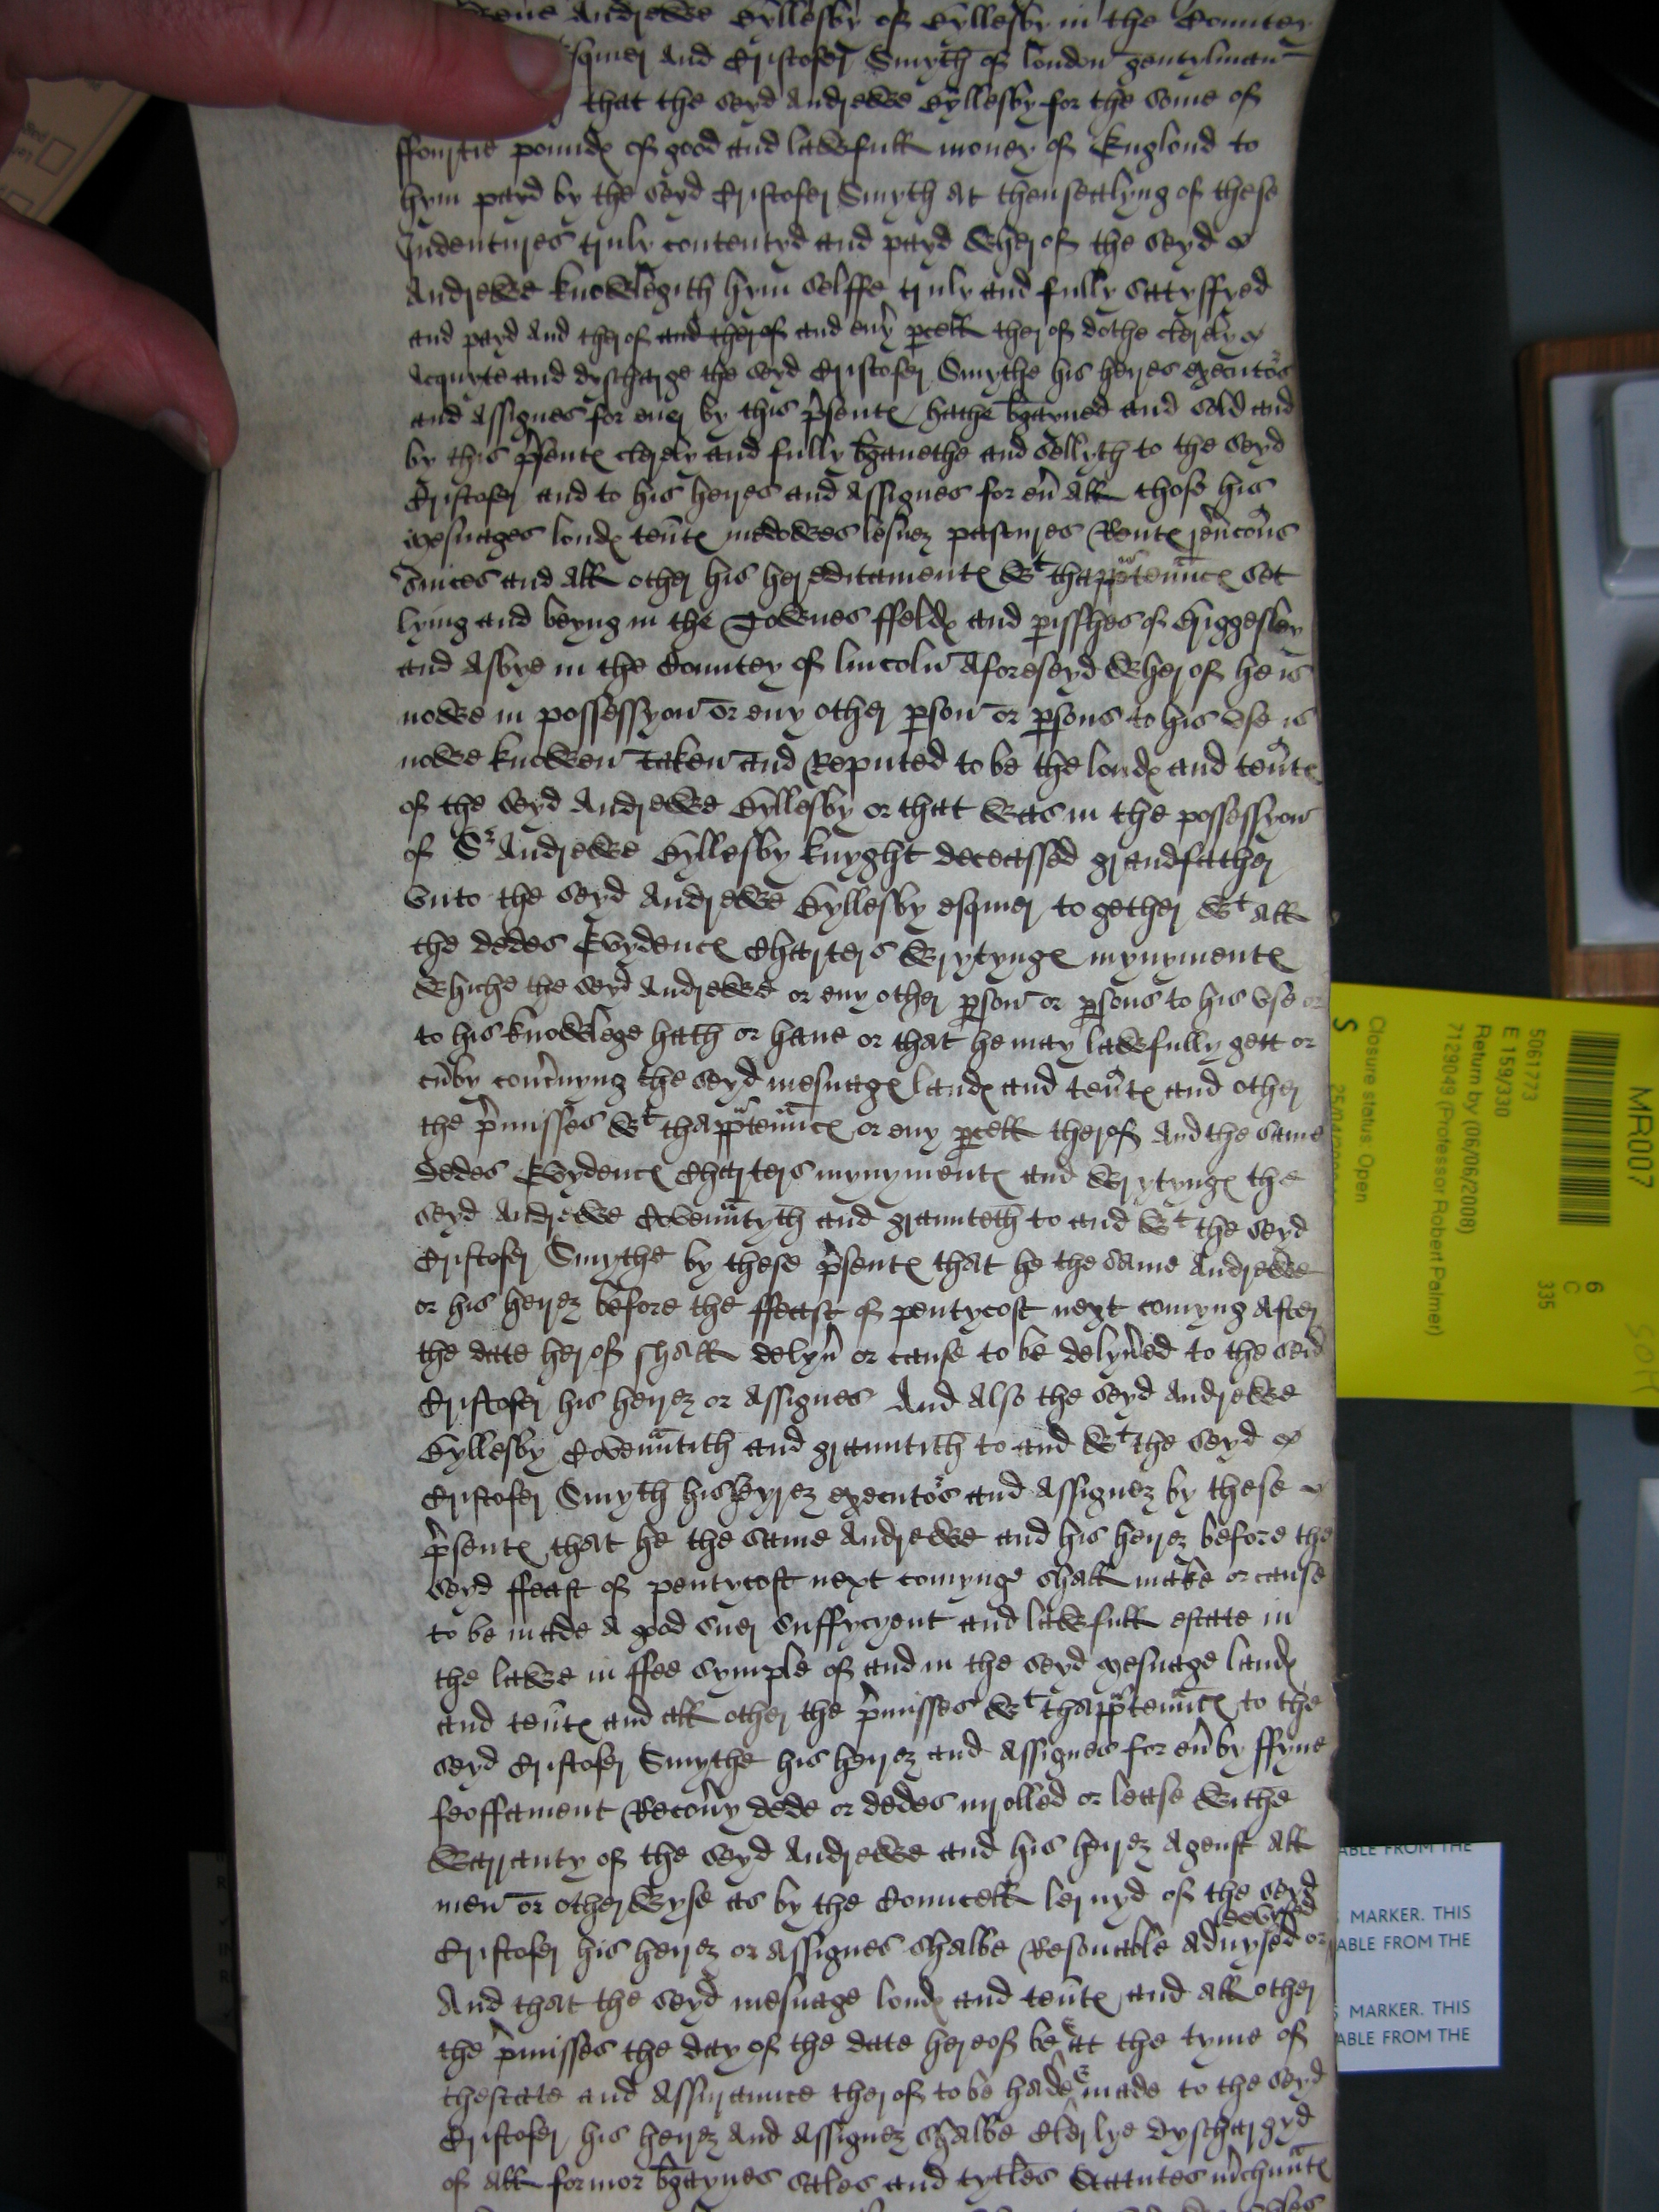 Andrewe Byllesby of Byllesby in the Countey
esquier And Cristofer Smyth of london gentylman
that the seyd Andrewe Byllesby for the some of
ffourtie poundꝭ of good and lawfull money of Englond to
hym payd by the seyd Cristofer Smyth At thensealyng of these
Indentures truly contentyd and payd wherof the seyd
Andrewe knowlegith hym selffe truly and fully satysfyed
and payd And therof and therof and eny pcell therof dothe clerely
Acquyte and dyscharge the seyd Cristofer Smythe his heyres executors
and Assignes for ever by this psentꝭ hathe bgayned and sold and
by this psentꝭ clerely and fully bganethe and sellyth to the seyd
Cristofer and to his heyres and Assignes for ev All those his
mesuages londꝭ tentꝭ medowes lesuez pastures Rentꝭ revcons
svices and All other his hereditamentꝭ wt thapptenncꝭ set
lying and beyng in the Townes ffeldꝭ and pisshes of Higgesley
and Asbye in the Countey of lincoln Aforeseyd wherof he is
nowe in possessyon or eny other pson or psons to his vse is
nowe knowen taken and Reputed to be the londꝭ and tentꝭ
of the seyd Andrewe Byllesby or that was in the possessyon
of Sr Andrewe Byllesby knyght deceassed grandfather
vnto the seyd Andrewe Byllesby esquier to gether wt All
the dedes Evydencꝭ Charters wrytyngꝭ mynymentꝭ
whiche the seyd Andrewe or eny other pson or psons to his vse or
to his knowlege hath or haue or that he may lawfully gett or
cvby concnyng the seyd mesuagꝭ landꝭ and tentꝭ and other
the pmisses wt thapptenncꝭ or eny pcell therof And the same
dedes Evydencꝭ Charters mynymentꝭ and wrytyngꝭ the
seyd Andrewe Covenntyth and graunteth to and wt the seyd
Cristofer Smythe by these psentꝭ that he the same Andrewe
or his heyrez before the ffeast of pentycost next comyng After
the date herof shall delyv or cause to be delyved to the seid
Cristofer his heyrez or Assignes And Also the seyd Andrewe
Byllesby Covenntith and grauntith to and wt the seyd
Cristofer Smyth his heyrez executors and Assignez by these
psentꝭ that he the same Andrewe and his heyrez before the
seyd ffeast of pentycost next comynge shall make or cause
to be made A good suer suffycyent and lawfull estate in
the lawe in ffee symple of and in the seyd mesuage landꝭ
and tentꝭ and all other the pmisses wt thapptenncꝭ to the
seyd Cristofer Smythe his heyrez and Assignes for ev by ffyne
feoffament Recovy dede or dedes inrolled or lease withe
warranty of the seyd Andrewe and his heyrez Agenst All
men or otherwyse as by the Councell lernyd of the seyd
Cristofer his heyrez or Assignes shalbe Resonable Aduysed or devysed
And that the seyd mesuage londꝭ and tentꝭ and All other
the pmisses the day of the date hereof be & at the tyme of
thestate and Assurannce therof to be hade & made to the seyd
Cristofer his heyrez And Assignez shalbe Clerlye dyschargyd
of All formor bgaynes sales and tytles Statutes mchuntꝭ
MR007
5061773
E 159/330
Return by (06/06/2008)
7129049 (Professor Robert Palmer)
Closure status: Open
S
6
C
335
ABLE FROM THE
MARKER. THIS
ABLE FROM THE
MARKER. THIS
ABLE FROM THE